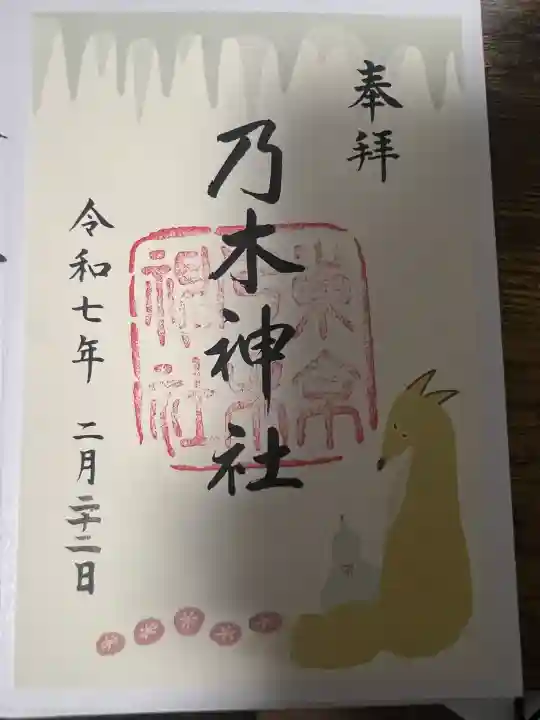 奉拝
乃木神社
東京乃木神社
令和七年 二月二十二日